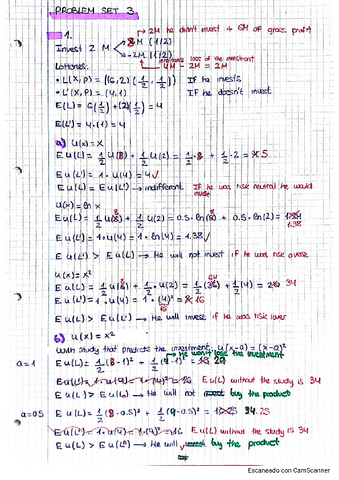 PROBLEM SET 3
2M he didn't invest + 6M of gross profit
1.
Invest 2 M 8M (1/2)
-2M (1/2)
loss of the investment
4M - 2M = 2M
Lotteries:
• L(X,P) = ((6,2) (1/2, 1/2)) If he invests
• L'(X,P) = (4,1) If he doesn't invest
E(L) = 6(1/2) + (2)(1/2) = 4
E(L') = 4·(1) = 4
a) u(x) = x
Eu(L) = 1/2 u(8) + 1/2 u(2) = 1/2·8 + 1/2·2 = 5
Eu(L') = 1·u(4) = 4 ✓
Eu(L) = Eu(L') → indifferent If he was risk neutral he would
u(x) = ln x
Eu(L) = 1/2 u(8) + 1/2 u(2) = 0.5·ln(8) + 0.5·ln(2) = 1.38
Eu(L') = 1·u(4) = 1·ln(4) = 1.38 ✓
Eu(L') > Eu(L) → He will not invest if he was risk averse
u(x) = x²
Eu(L) = 1/2 u(8) + 1/2·u(2) = 1/2·(64) + 1/2(4) = 34
Eu(L') = 1·u(4) = 1·(4)² = 16
Eu(L) > Eu(L') → He will invest if he was risk lover
b) u(x) = x²
With study that predicts the investment: u(x-a) = (x-a)²
He won't lose the investment
a=1 Eu(L) = 1/2(8-1)² + 1/2(4-1)² = 29
Eu(L') = 1·u(4) = 1·(4)² = 16 Eu(L) without the study is 34
Eu(L) > Eu(L) → He will not buy the product
a=0.5 Eu(L) = 1/2(8-0.5)² + 1/2(4-0.5)² = 34.25
Eu(L') = 1·u(4) = 1·(4)² = 16 Eu(L) without the study is 34
Eu(L) > Eu(L') → He will buy the product
Escaneado con CamScanner